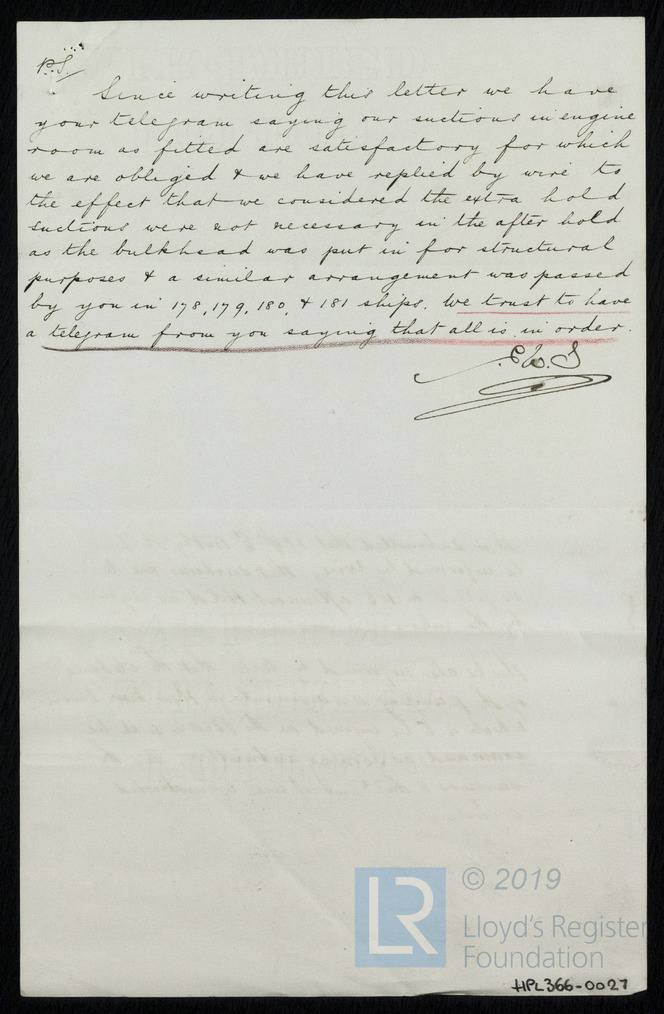 P.S.
Since writing this letter we have
your telegram saying our suctions in engine
room as fitted are satisfactory for which
we are obliged & we have replied by wire to
the effect that we considered the extra hold
suctions were not necessary in the after hold
as the bulkhead was put in for structural
purposes & a similar arrangement was passed
by you in 178, 179, 180, & 181 ships. We trust to have
a telegram from you saying that all is in order.
LR
© 2019
Lloyd's Register
Foundation
HPL366-0027